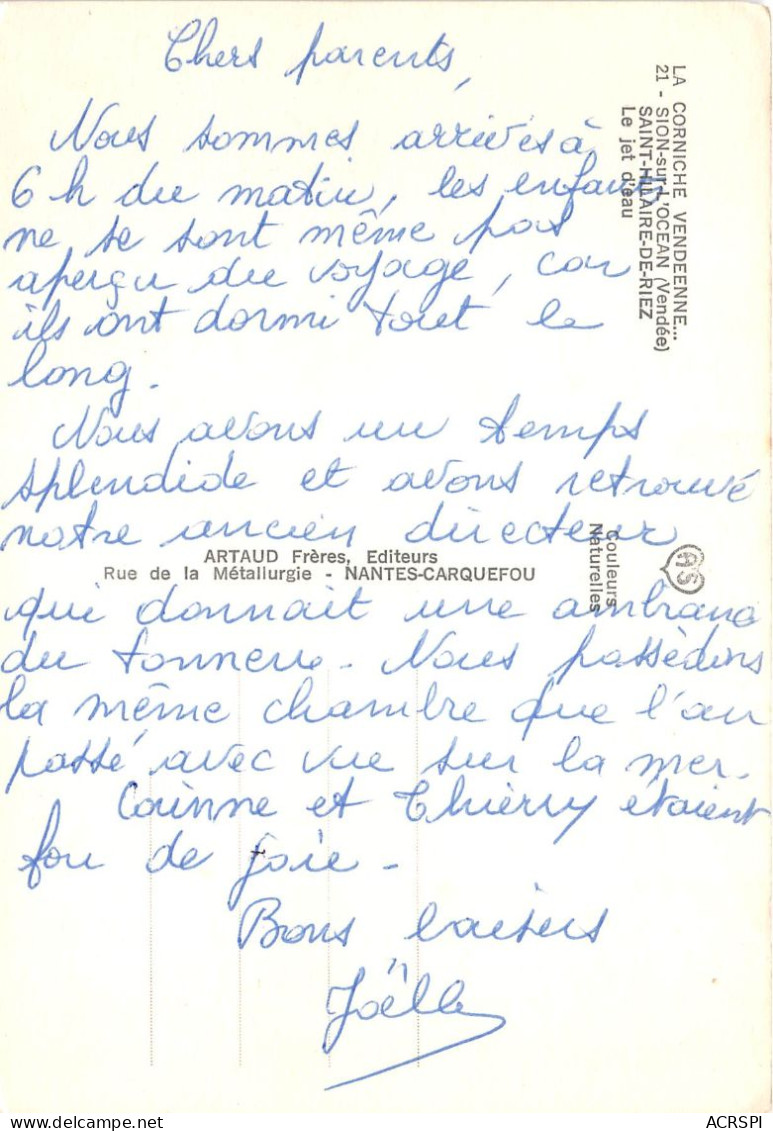 Chers parents,
Nous sommes arrivés à
6 h du matin, les enfants
ne se sont même pas
aperçu du voyage, car
ils ont dormi tout le
long.
Nous avons un temps
splendide et avons retrouvé
notre ancien directeur
qui donnait une ambiance
du tonnerre. Nous possédons
la même chambre que l'an
passé avec vue sur la mer.
Corinne et Thierry étaient
fou de joie.
Bons baisers
Joëlle
LA CORNICHE VENDEENNE...
21 - SION-sur-L'OCEAN (Vendée)
SAINT-HILAIRE-DE-RIEZ
Le jet d'eau
Couleurs
Naturelles
AS
ARTAUD Frères, Editeurs
Rue de la Métallurgie - NANTES-CARQUEFOU
ACRSPI